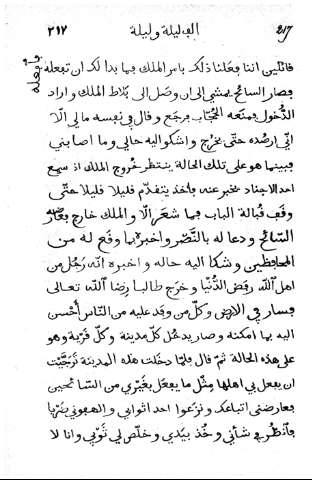 ٢١٧ الف ليلة وليلة 217
بما تفعله
قائلين اننا فعلنا ذلك باس الملك فما بدا لك ان تفعله
فصار السائح يمشي الى ان وصل الى بلاط الملك واراد
الدخول فمنعه الحجّاب فرجع وقال في نفسه ما لي الّا
انّي ارصده حتّى يخرج واشكو اليه حالي وما اصابني
فبينما هو على تلك الحالة ينتظر خروج الملك اذ سمع
احد الاجناد يخبر عنه فاخذ يتقدّم قليلا قليلا حتّى
وقف قبالة الباب فما شعر الّا والملك خارج فعارضه
السّائح ودعا له بالنّصر واخبره بما وقع له من
المحافظين وشكا اليه حاله واخبره انّه رجل من
اهل اللّه رفض الدّنيا وخرج طالبا رضا اللّه تعالى
فسار في الارض وكلّ من وفد عليه من النّاس احسن
اليه بما امكنه وصار يدخل كلّ مدينة وكلّ قرية وهو
على هذه الحالة ثمّ قال فلمّا دخلت هذه المدينة ترجّيت
ان يفعل بي اهلها مثل ما يفعل بغيري من السّائحين
فعارضني اتباعك ونزعوا احد اثوابي والهبوني ضربا
فانظر في شأني وخذ بيدي وخلّص لي ثوبي وانا لا